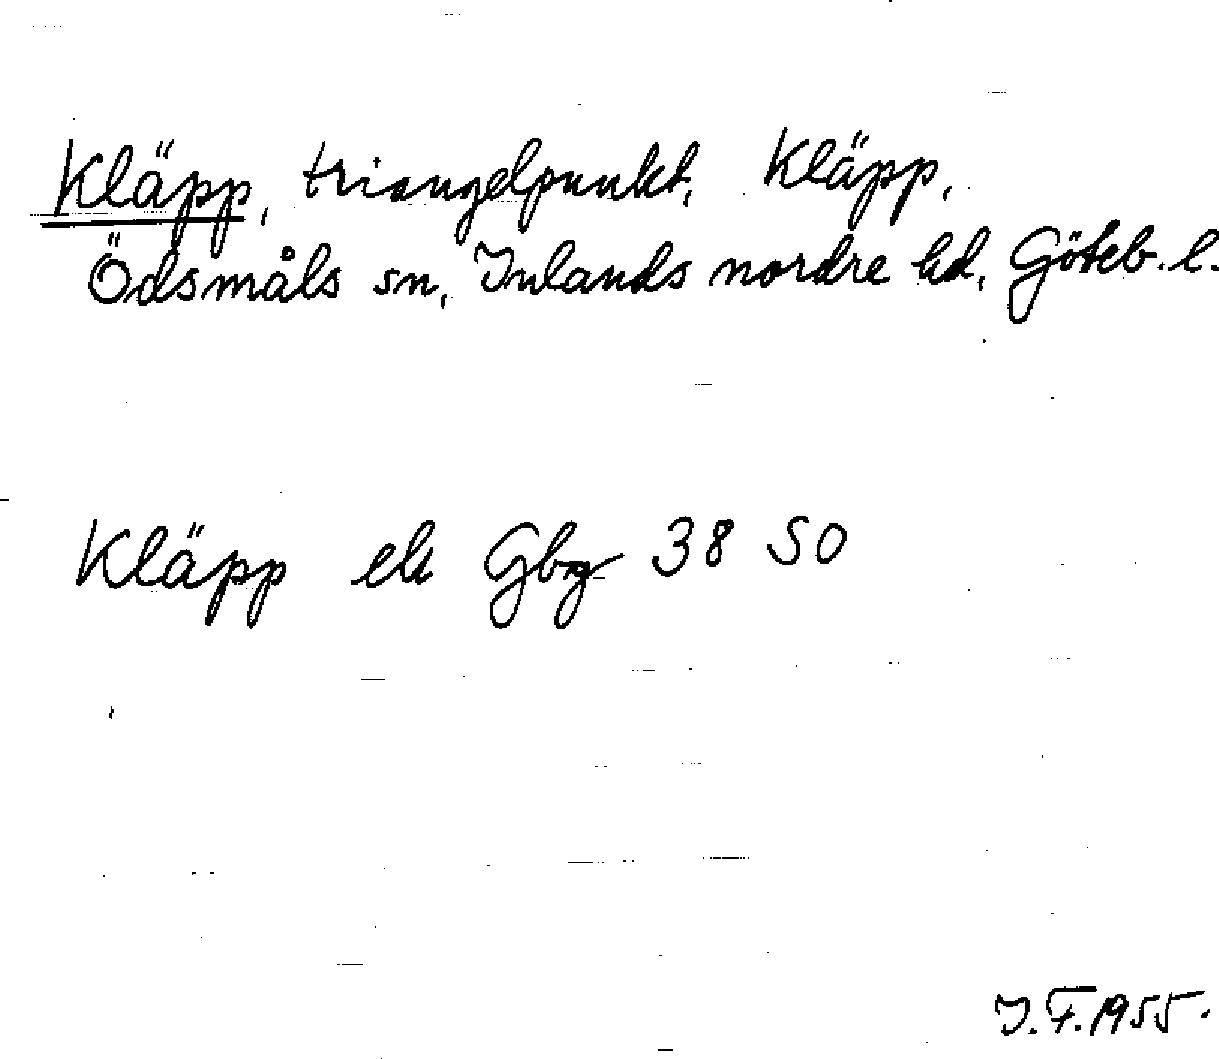 Kläpp, triangelpunkt, Kläpp,
Ödsmåls sn, Inlands nordre hd, Göteb. l.
Kläpp ek Gbg 38 SO
I.F. 1955.